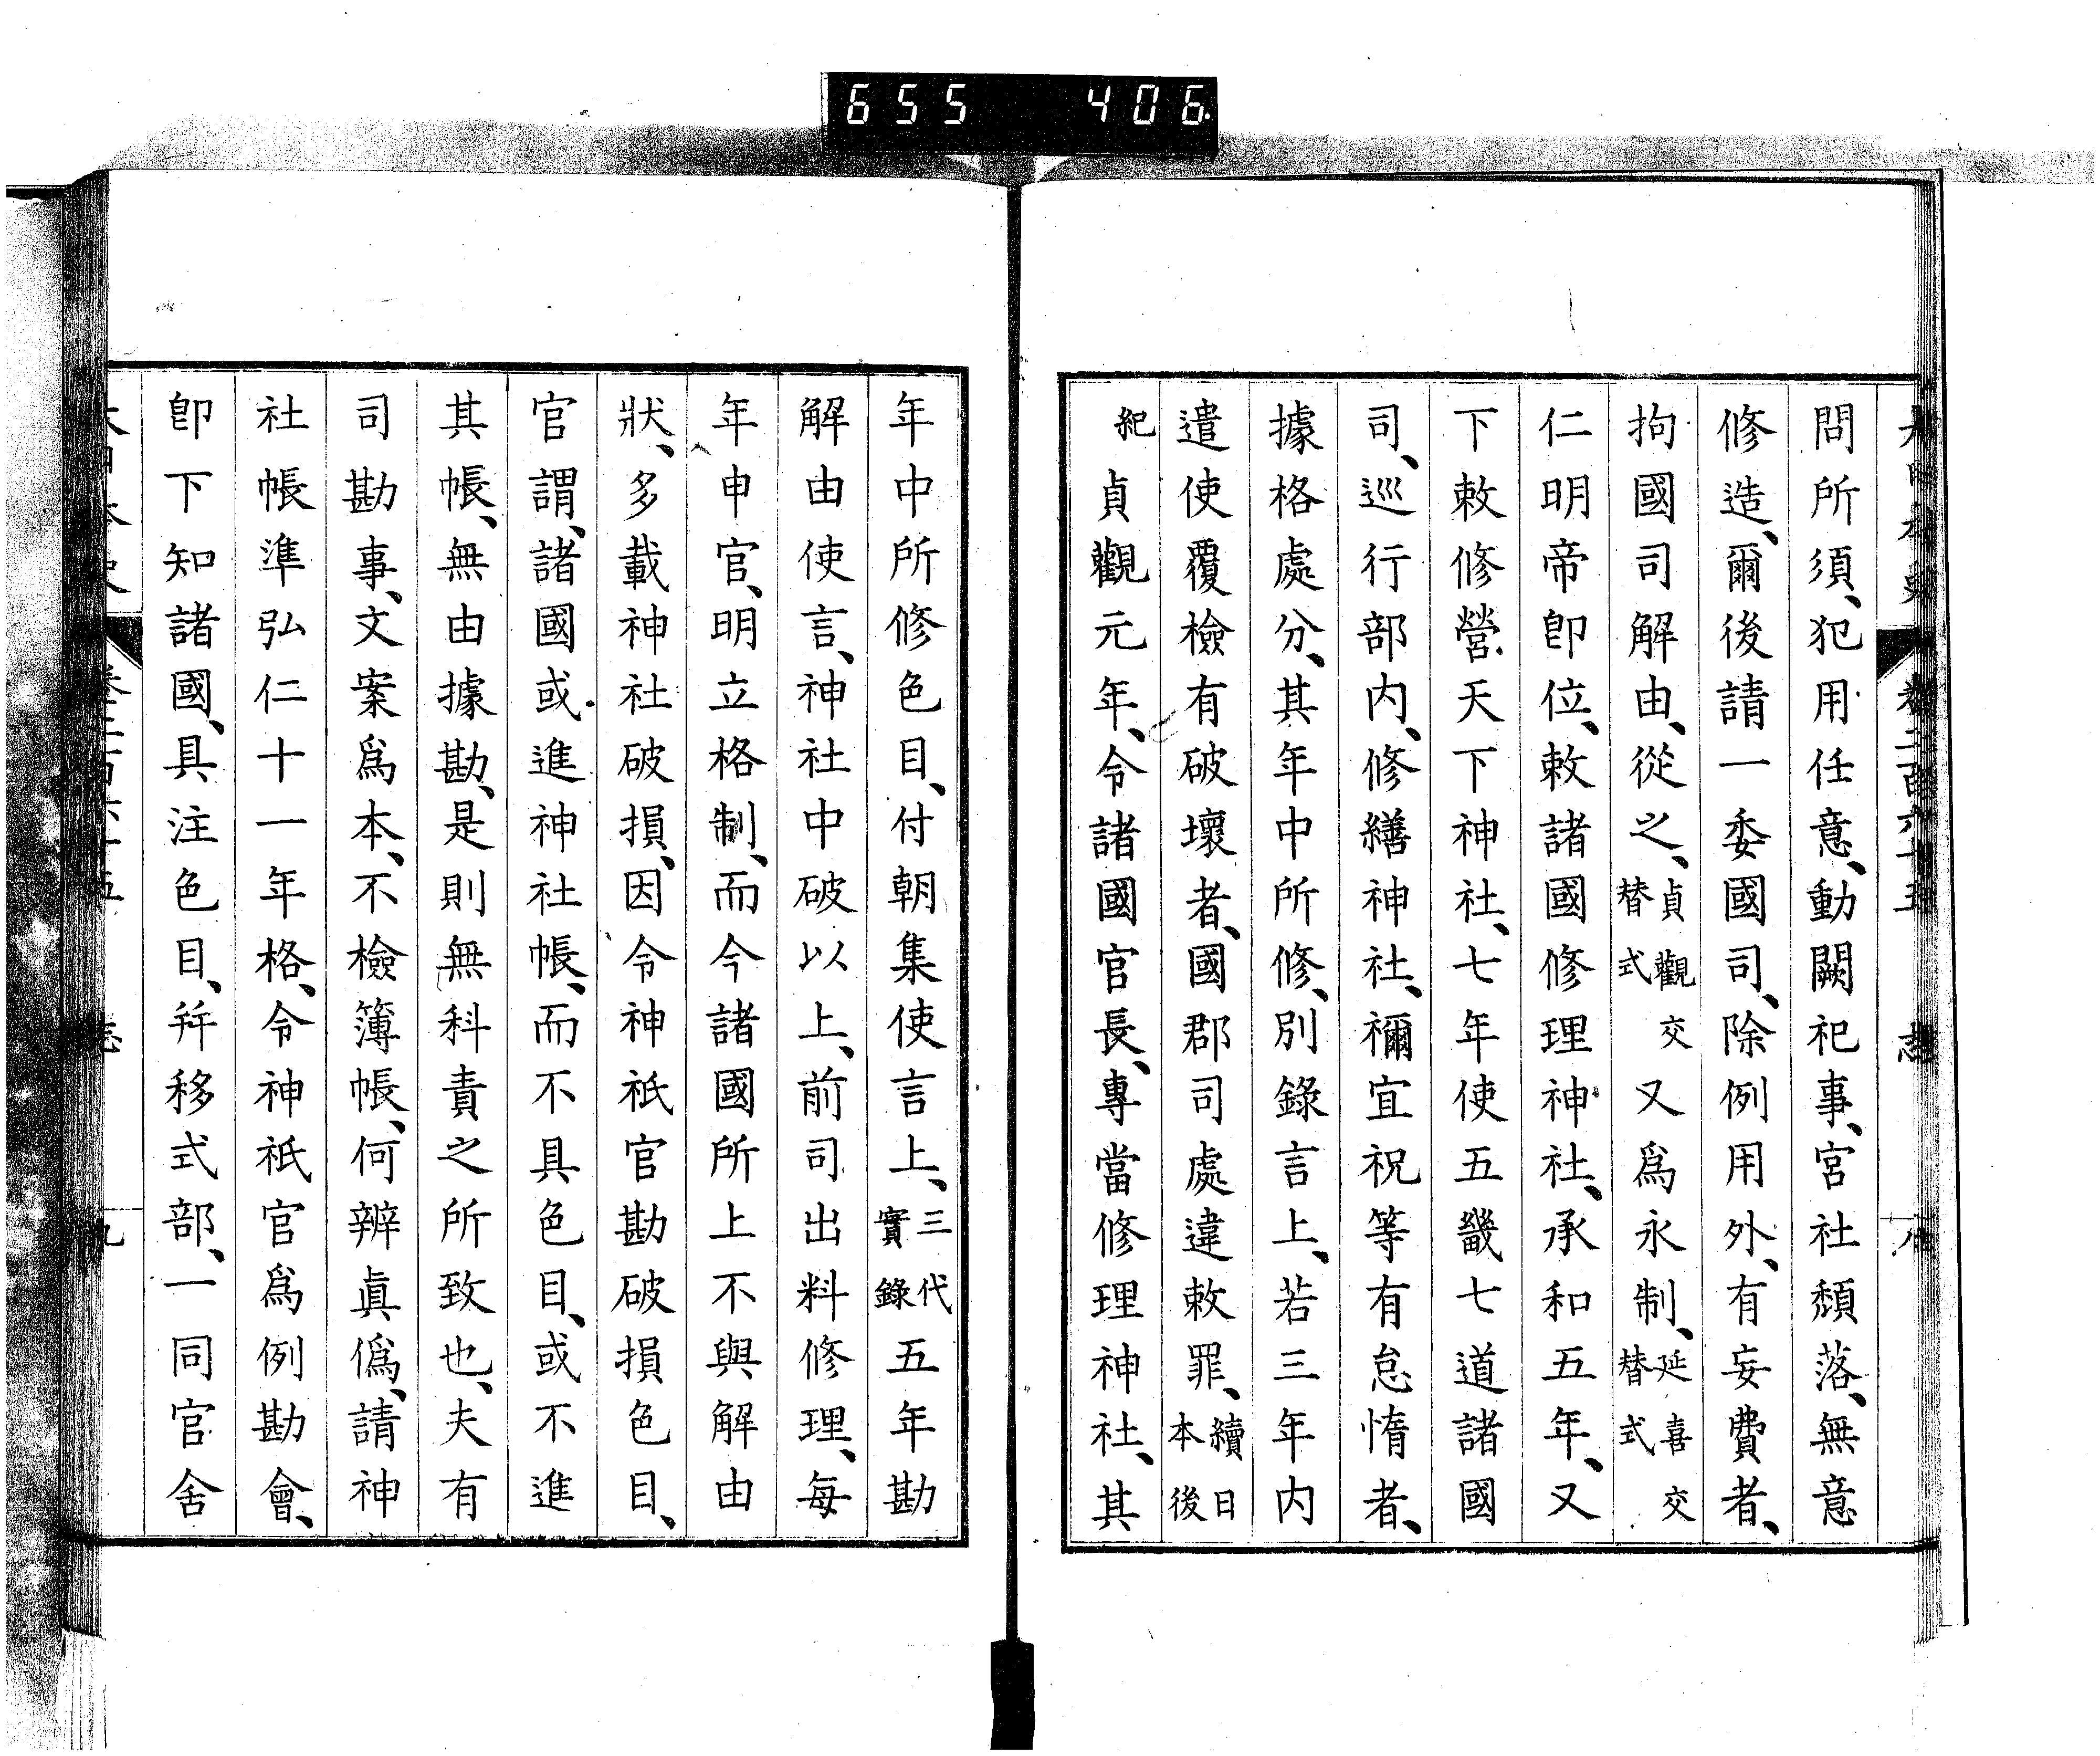 655 406.
大日本史 卷二百六十五 志 八
問所須、犯用任意、動闕祀事、宮社頽落、無意
修造、爾後請一委國司、除例用外、有妄費者、
拘國司解由、從之、貞觀交替式又爲永制、延喜交替式
仁明帝卽位、敕諸國修理神社、承和五年、又
下敕修營天下神社、七年使五畿七道諸國
司、巡行部内、修繕神社、禰宜祝等有怠惰者、
據格處分、其年中所修、別錄言上、若三年内
遣使覆檢有破壞者、國郡司處違敕罪、續日本後
紀貞觀元年、令諸國官長、專當修理神社、其
年中所修色目、付朝集使言上、三代實錄五年勘
解由使言、神社中破以上、前司出料修理、每
年申官、明立格制、而今諸國所上不與解由
狀、多載神社破損、因令神祇官勘破損色目、
官謂、諸國或進神社帳、而不具色目、或不進
其帳、無由據勘、是則無科責之所致也、夫有
司勘事、文案爲本、不檢簿帳、何辨眞僞、請神
社帳準弘仁十一年格、令神祇官爲例勘會、
卽下知諸國、具注色目、幷移式部、一同官舍
大日本史 卷二百六十五 志 九